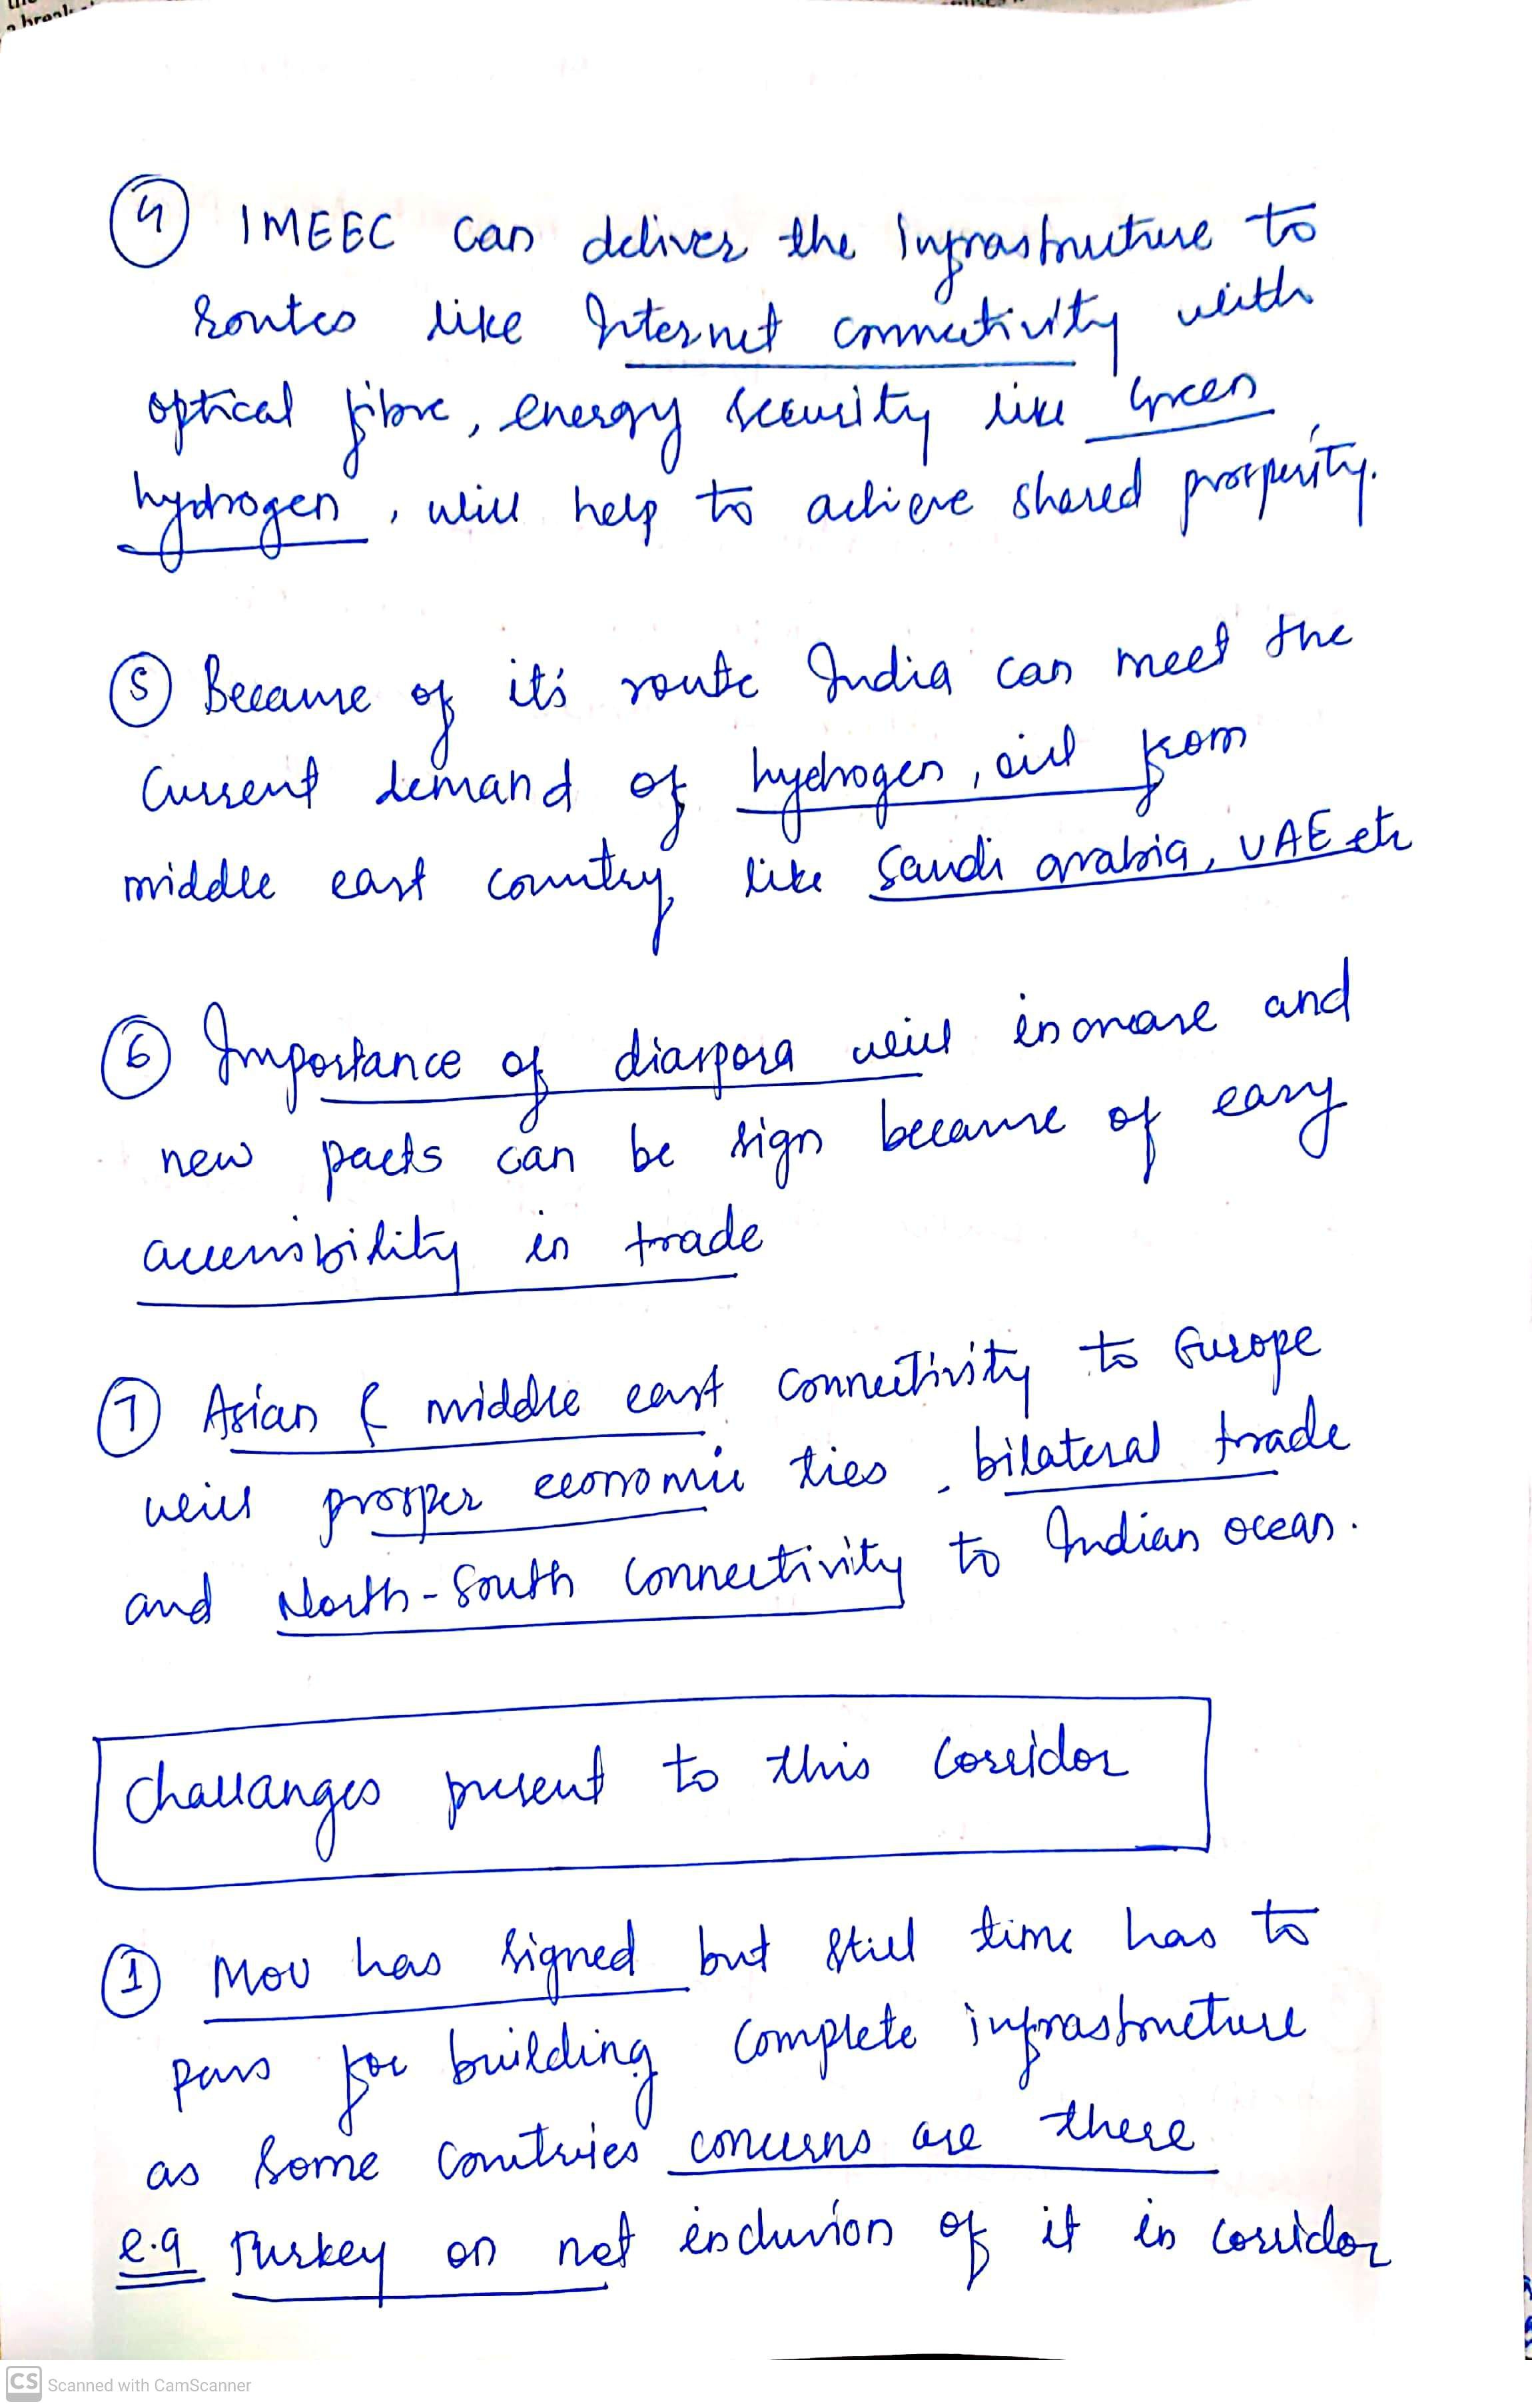 ④ IMEEC can deliver the Infrastructure to
routes like Internet connectivity with
optical fibre, energy security like Green
hydrogen, will help to achieve shared prosperity.
⑤ Because of it's route India can meet the
current demand of hydrogen, oil from
middle east country like Saudi arabia, UAE etc
⑥ Importance of diaspora will increase and
new pacts can be sign because of easy
accessibility in trade
⑦ Asian & middle east connectivity to Europe
will prosper economic ties, bilateral trade
and North-South connectivity to Indian ocean.
Challanges present to this corridor
① MOU has signed but still time has to
pass for building complete infrastructure
as some countries concerns are there
e.g Turkey on not inclusion of it in corridor
CS Scanned with CamScanner